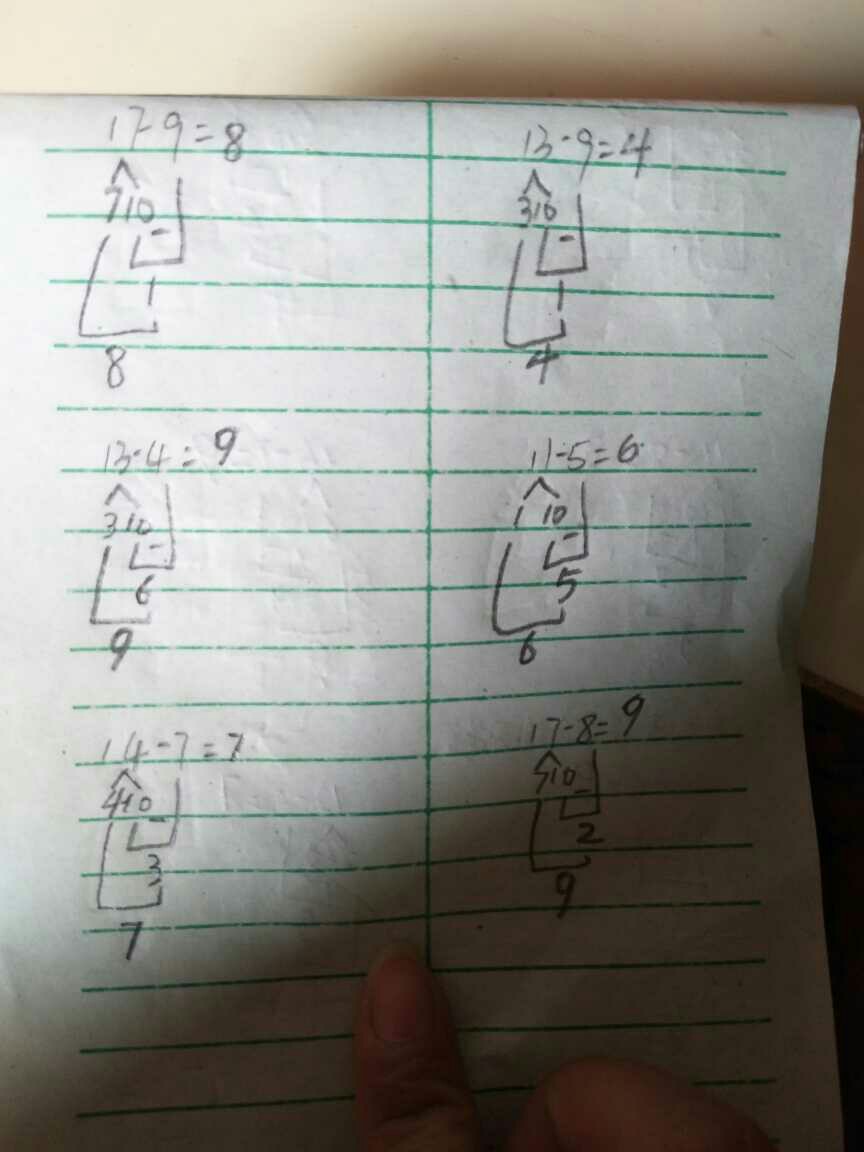 17-9=8
7 10
-
1
8
13-9=4
3 10
-
1
4
13-4=9
3 10
-
6
9
11-5=6
1 10
-
5
6
14-7=7
4 10
-
3
7
17-8=9
7 10
-
2
9